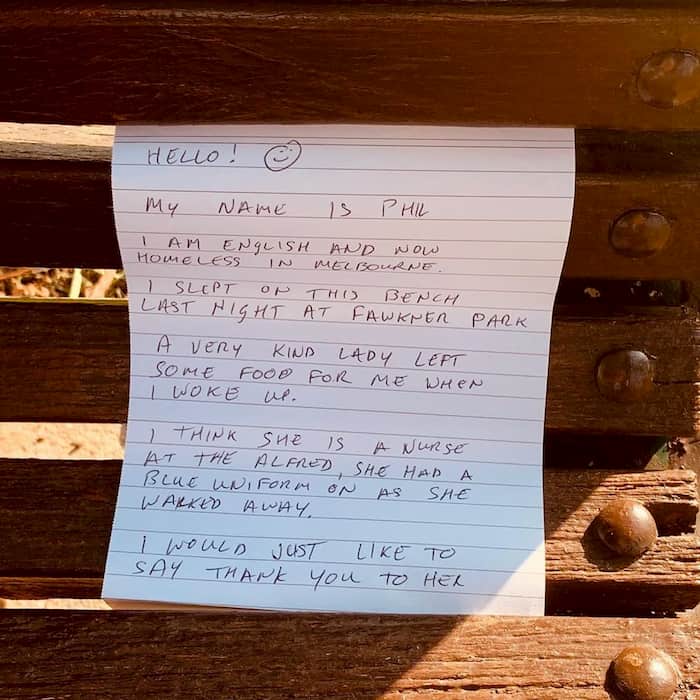 HELLO! ☺
MY NAME IS PHIL
I AM ENGLISH AND NOW
HOMELESS IN MELBOURNE.
I SLEPT ON THIS BENCH
LAST NIGHT AT FAWKNER PARK
A VERY KIND LADY LEFT
SOME FOOD FOR ME WHEN
I WOKE UP.
I THINK SHE IS A NURSE
AT THE ALFRED, SHE HAD A
BLUE UNIFORM ON AS SHE
WALKED AWAY.
I WOULD JUST LIKE TO
SAY THANK YOU TO HER